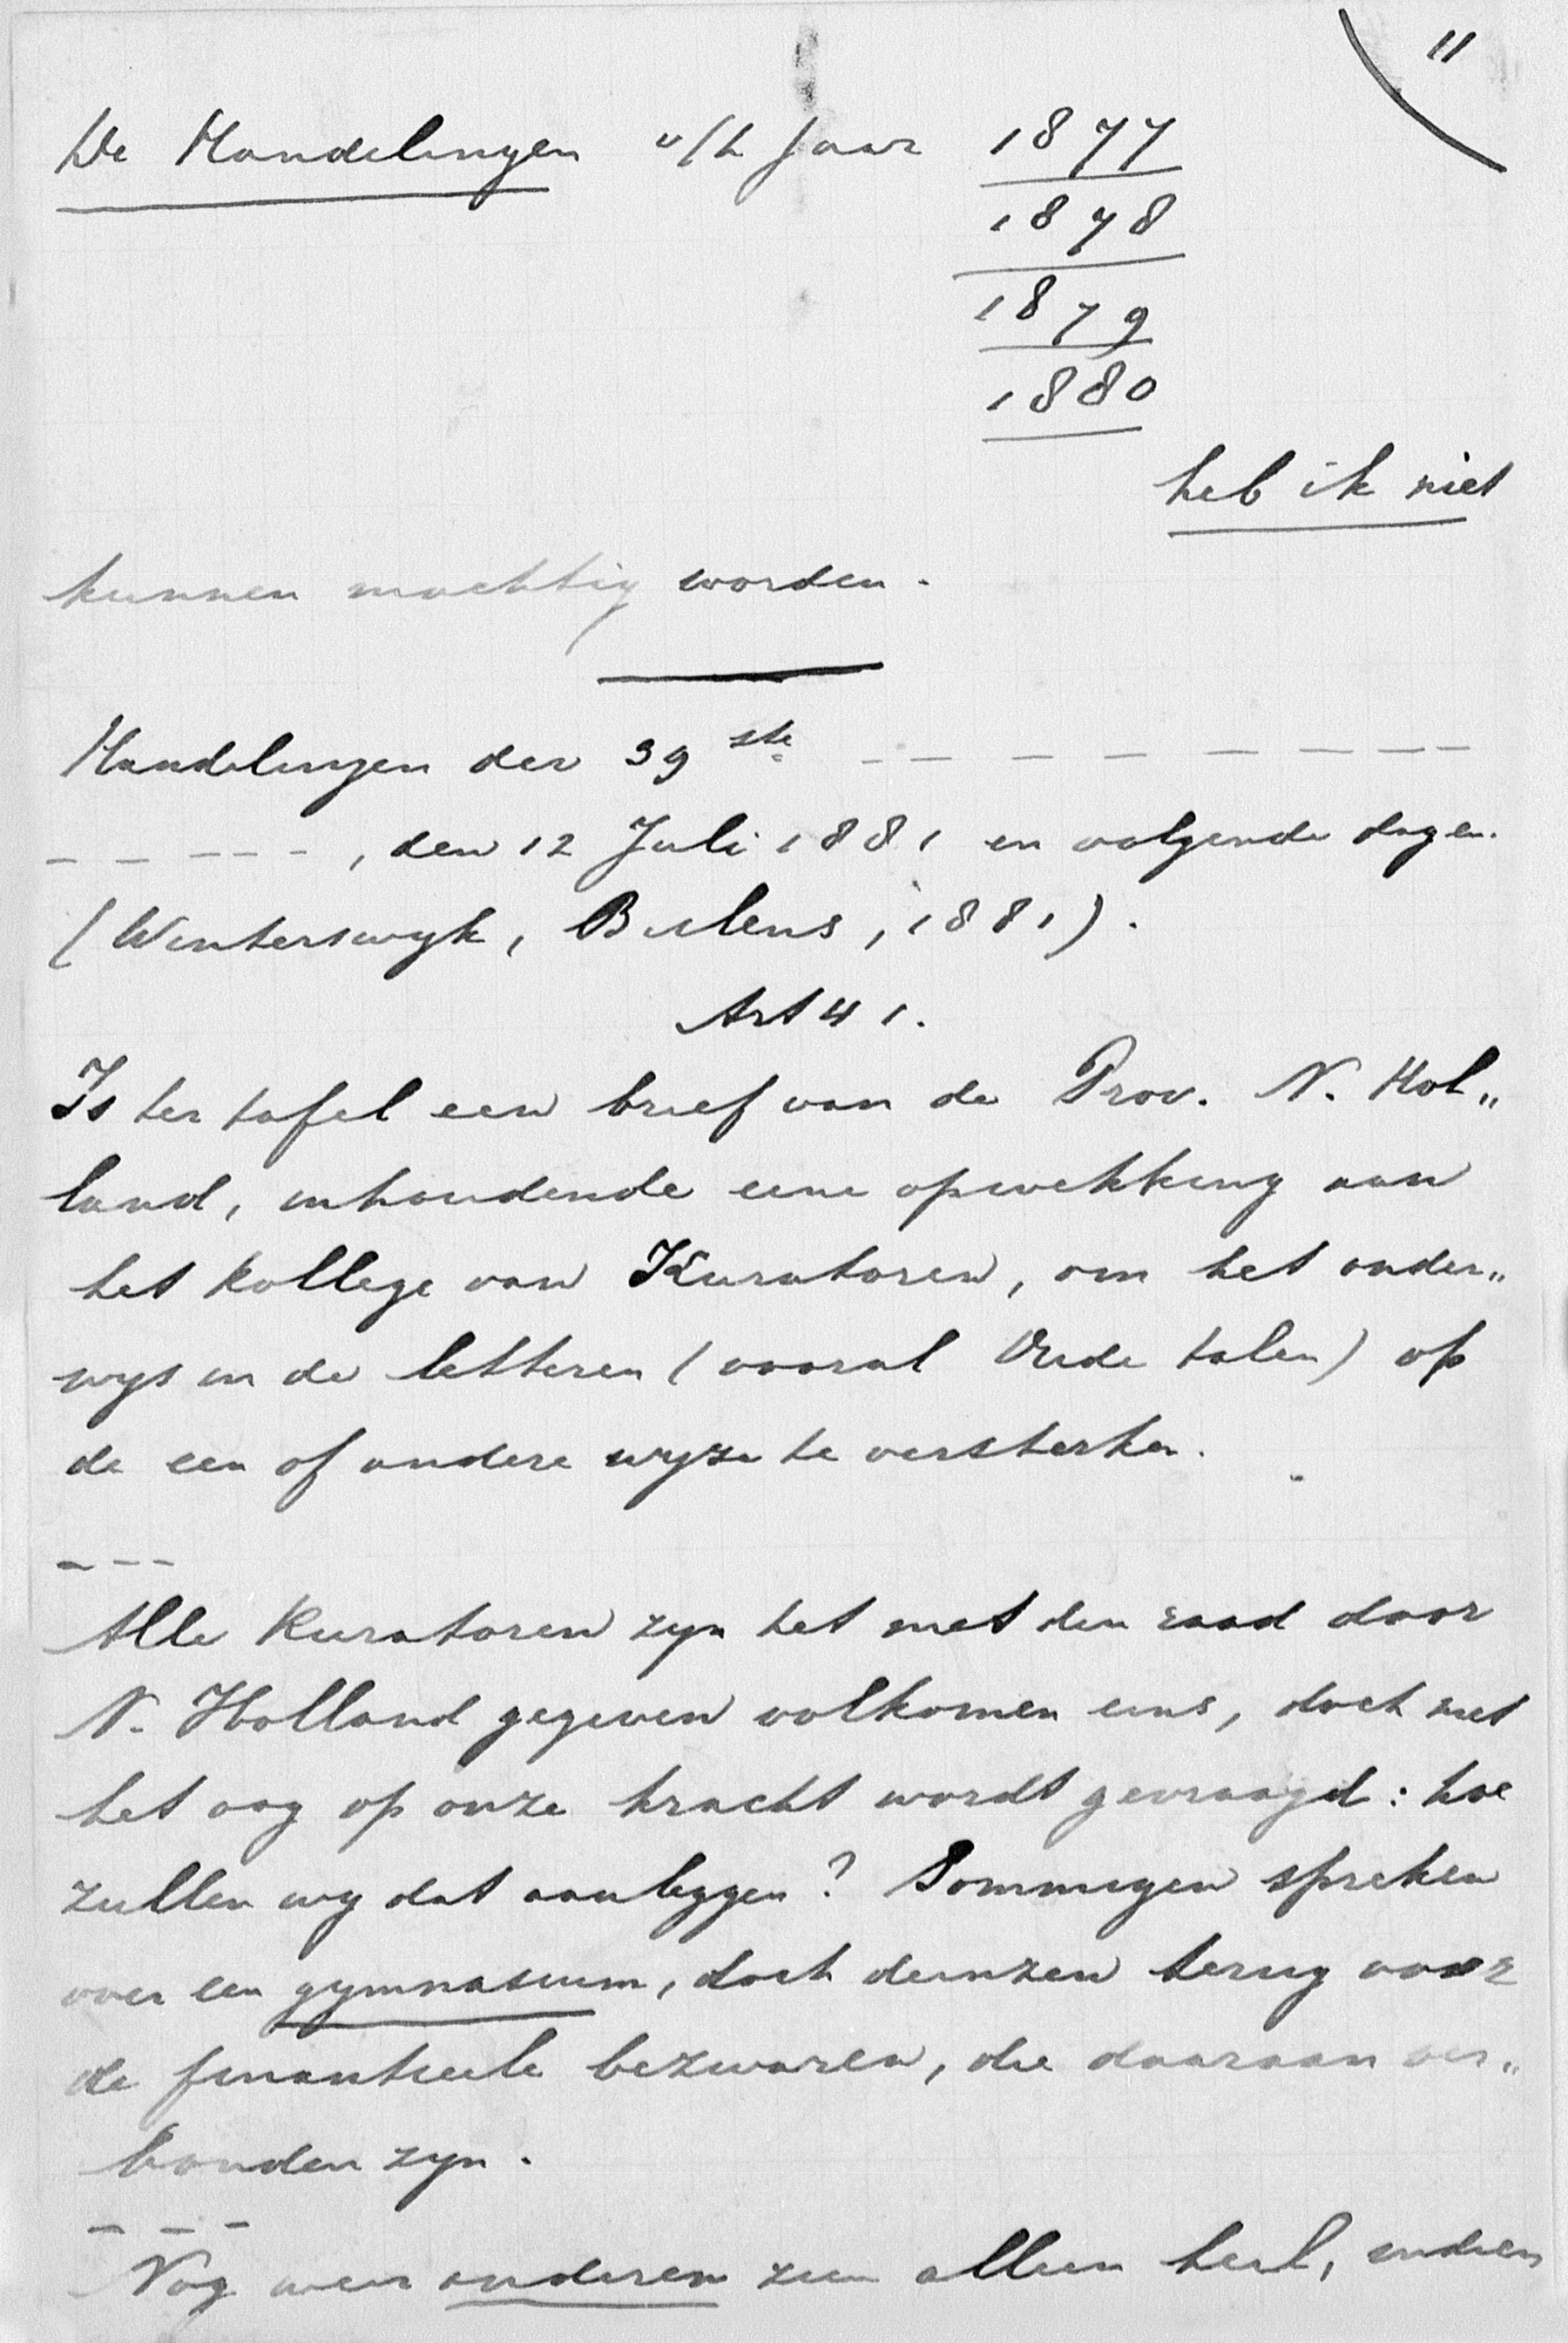 11
De Handelingen v/h Jaar 1877
1878
1879
1880
heb ik niet
kunnen machtig worden.
Handelingen der 39ste - - - - - - -
- - - - - , den 12 Juli 1881 en volgende dagen.
(Winterswyk, Bulens, 1881).
Art 41.
Is ter tafel een brief van de Prov. N. Hol„
land, inhoudende eene opwekking aan
het kollege van Kuratoren, om het onder„
wys in de letteren (vooral Oude talen) op
de een of andere wyze te versterken.
- - -
Alle Kuratoren zyn het met den raad door
N. Holland gegeven volkomen eens, doch met
het oog op onze kracht wordt gevraagd: hoe
zullen wy dat aanleggen? Sommigen spreken
over een gymnasium, doch deinzen terug voor
de finantieele bezwaren, die daaraan ver„
bonden zyn.
- - -
Nog weer anderen zien alleen heil, indien